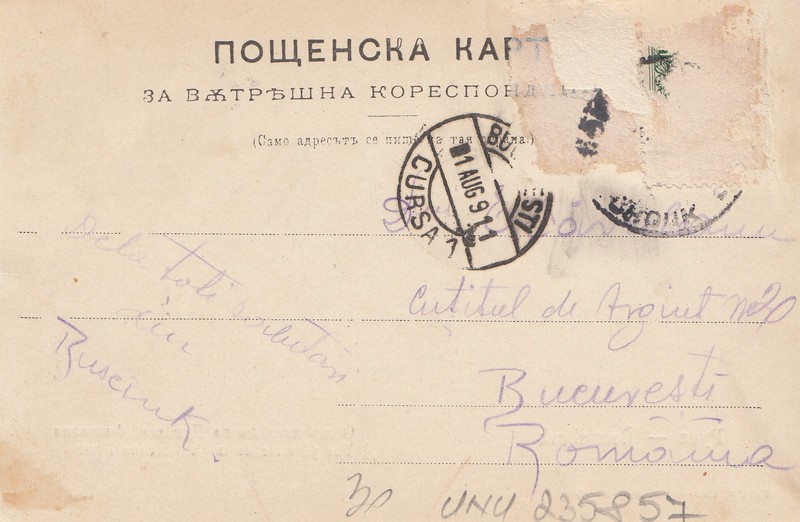 ПОЩЕНСКА КАРТ
ЗА ВѪТРѢШНА КОРЕСПОНД
(Само адресътъ се пише на тая страна.)
BU STI
01 AUG 911
CURSA 1
Dela toti salutări
din
Rusciuk.
Cutitul de Argint No 20
București
România
30 VNU 235857